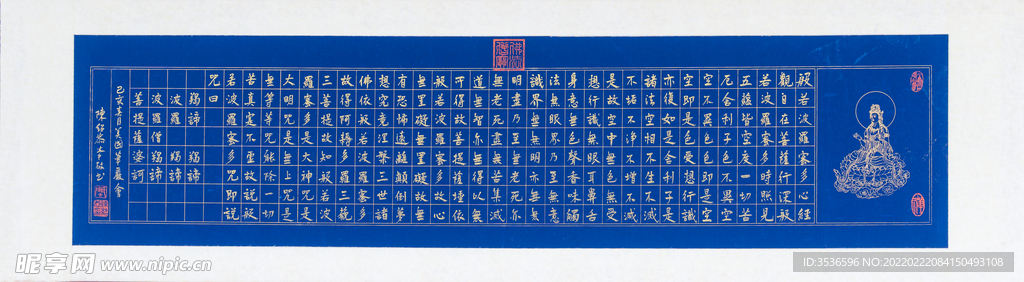 般若波羅蜜多心經
觀自在菩薩行深般
若波羅蜜多時照見
五蘊皆空度一切苦
厄舍利子色不異空
空不異色色即是空
空即是色受想行識
亦復如是舍利子是
諸法空相不生不滅
不垢不淨不增不減
是故空中無色無受
想行識無眼耳鼻舌
身意無色聲香味觸
法無眼界乃至無意
識界無無明亦無無
明盡乃至無老死亦
無老死盡無苦集滅
道無智亦無得以無
所得故菩提薩埵依
般若波羅蜜多故心
無罣礙無罣礙故無
有恐怖遠離顛倒夢
想究竟涅槃三世諸
佛依般若波羅蜜多
故得阿耨多羅三藐
三菩提故知般若波
羅蜜多是大神咒是
大明咒是無上咒是
無等等咒能除一切
苦真實不虛故說般
若波羅蜜多咒即說
咒曰
羯諦 羯諦
波羅 羯諦
波羅僧 羯諦
菩提薩婆訶
己亥 月美國華嚴會
昵享网 www.nipic.cn
ID:3536596 NO:20220222084150493108